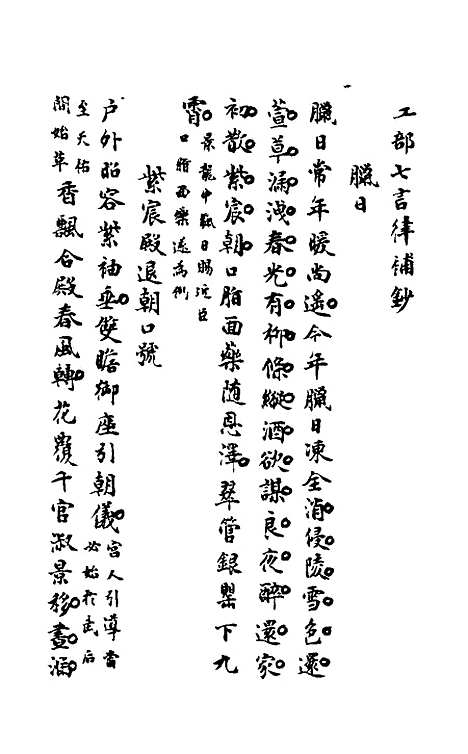 工部七言律補鈔
臘日
臘日常年暖尚遙今年臘日凍全消侵陵雪色還
萱草漏洩春光有柳條縱酒欲謀良夜醉還家
初散紫宸朝口脂面藥隨恩澤翠管銀罌下九
霄景龍中臘日賜近臣
口脂面藥遂為例
紫宸殿退朝口號
户外昭容紫袖垂雙瞻御座引朝儀宮人引導當
必始於武后
至天佑
間始革香飄合殿春風轉花覆千官淑景移晝漏